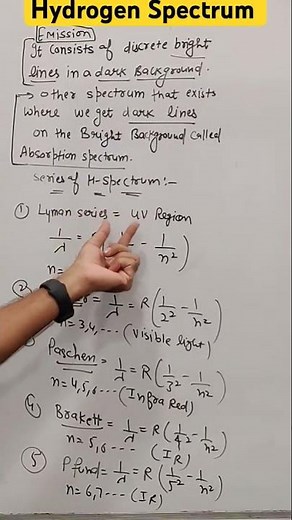 Hydrogen Spectrum
Emission
It consists of discrete bright
lines in a dark Background.
→ other spectrum that exists
where we get dark lines
on the Bright Background called
Absorption spectrum.
Series of H-Spectrum:-
① Lyman series = UV Region
1/λ = - 1/n²)
n =
= 1/λ = R(1/2² - 1/n²)
n = 3,4, --- (Visible light)
Paschen = 1/λ = R(1/3² - 1/n²)
n = 4,5,6 --- (Infra Red)
④ Brakett = 1/λ = R(1/4² - 1/n²)
n = 5,6, --- (IR)
⑤ Pfund = 1/λ = R(1/5² - 1/n²)
n = 6,7 --- (IR)